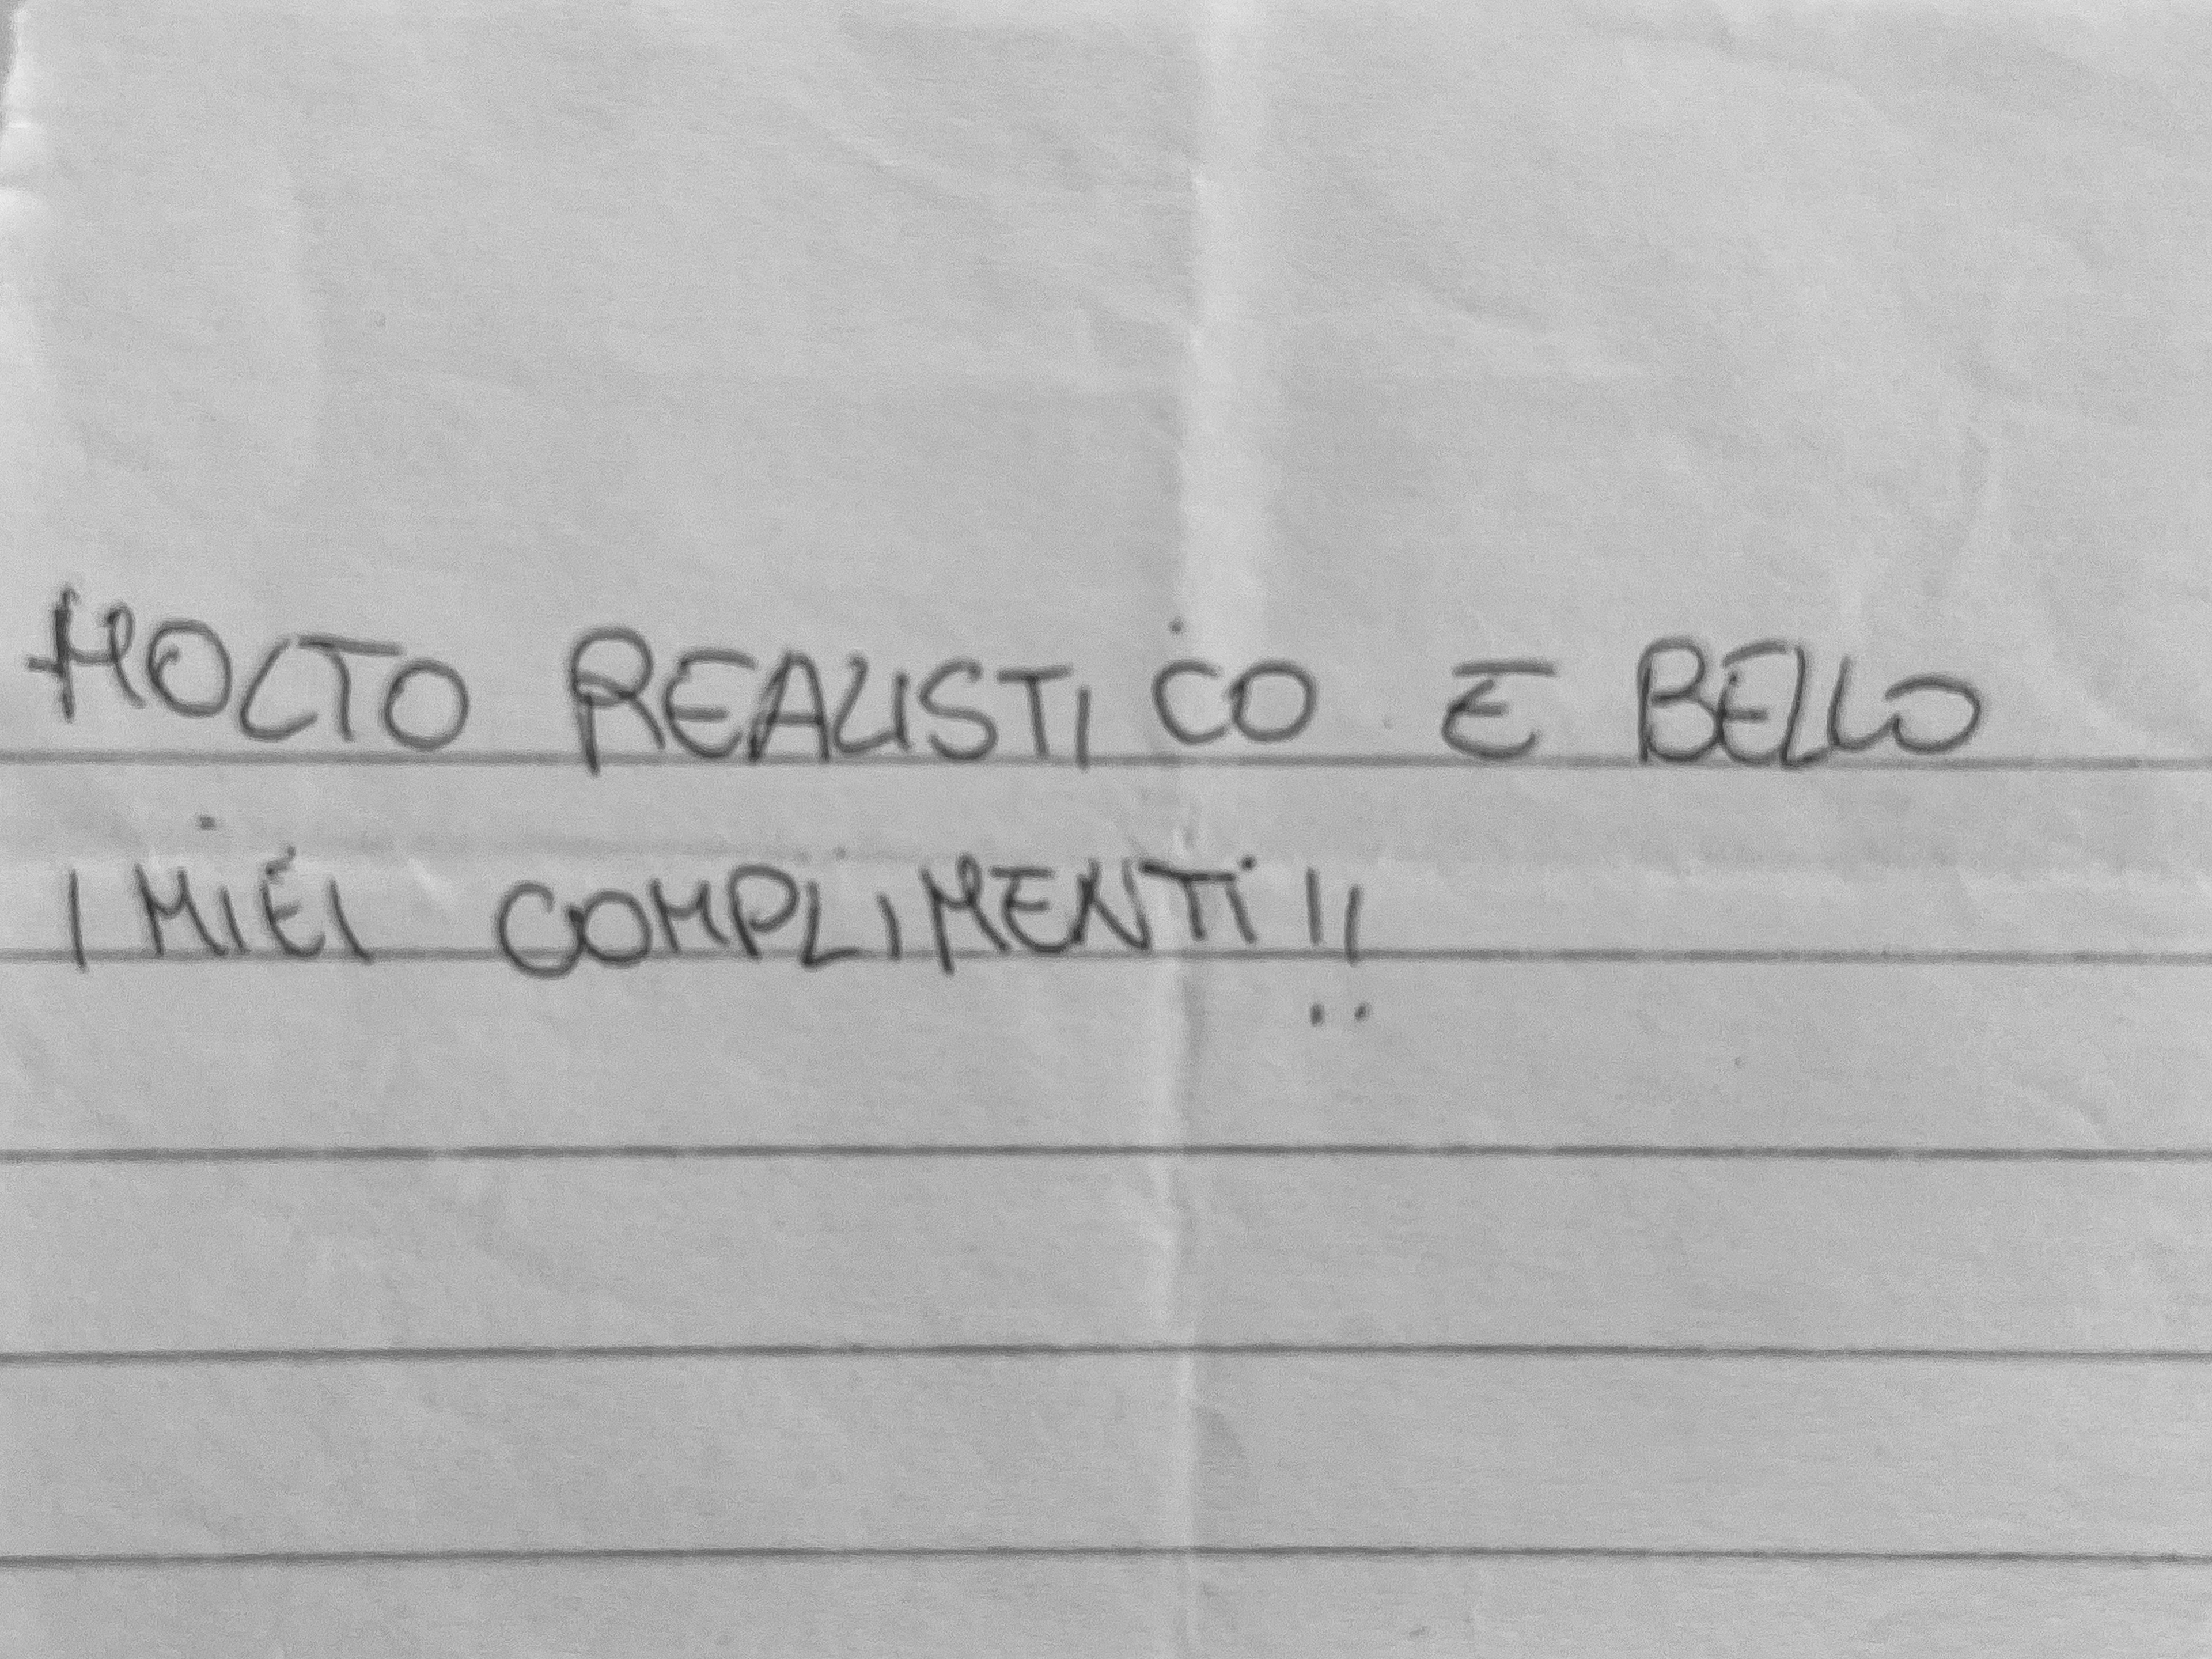 MOLTO REALISTICO E BELLO
I MIEI COMPLIMENTI!!